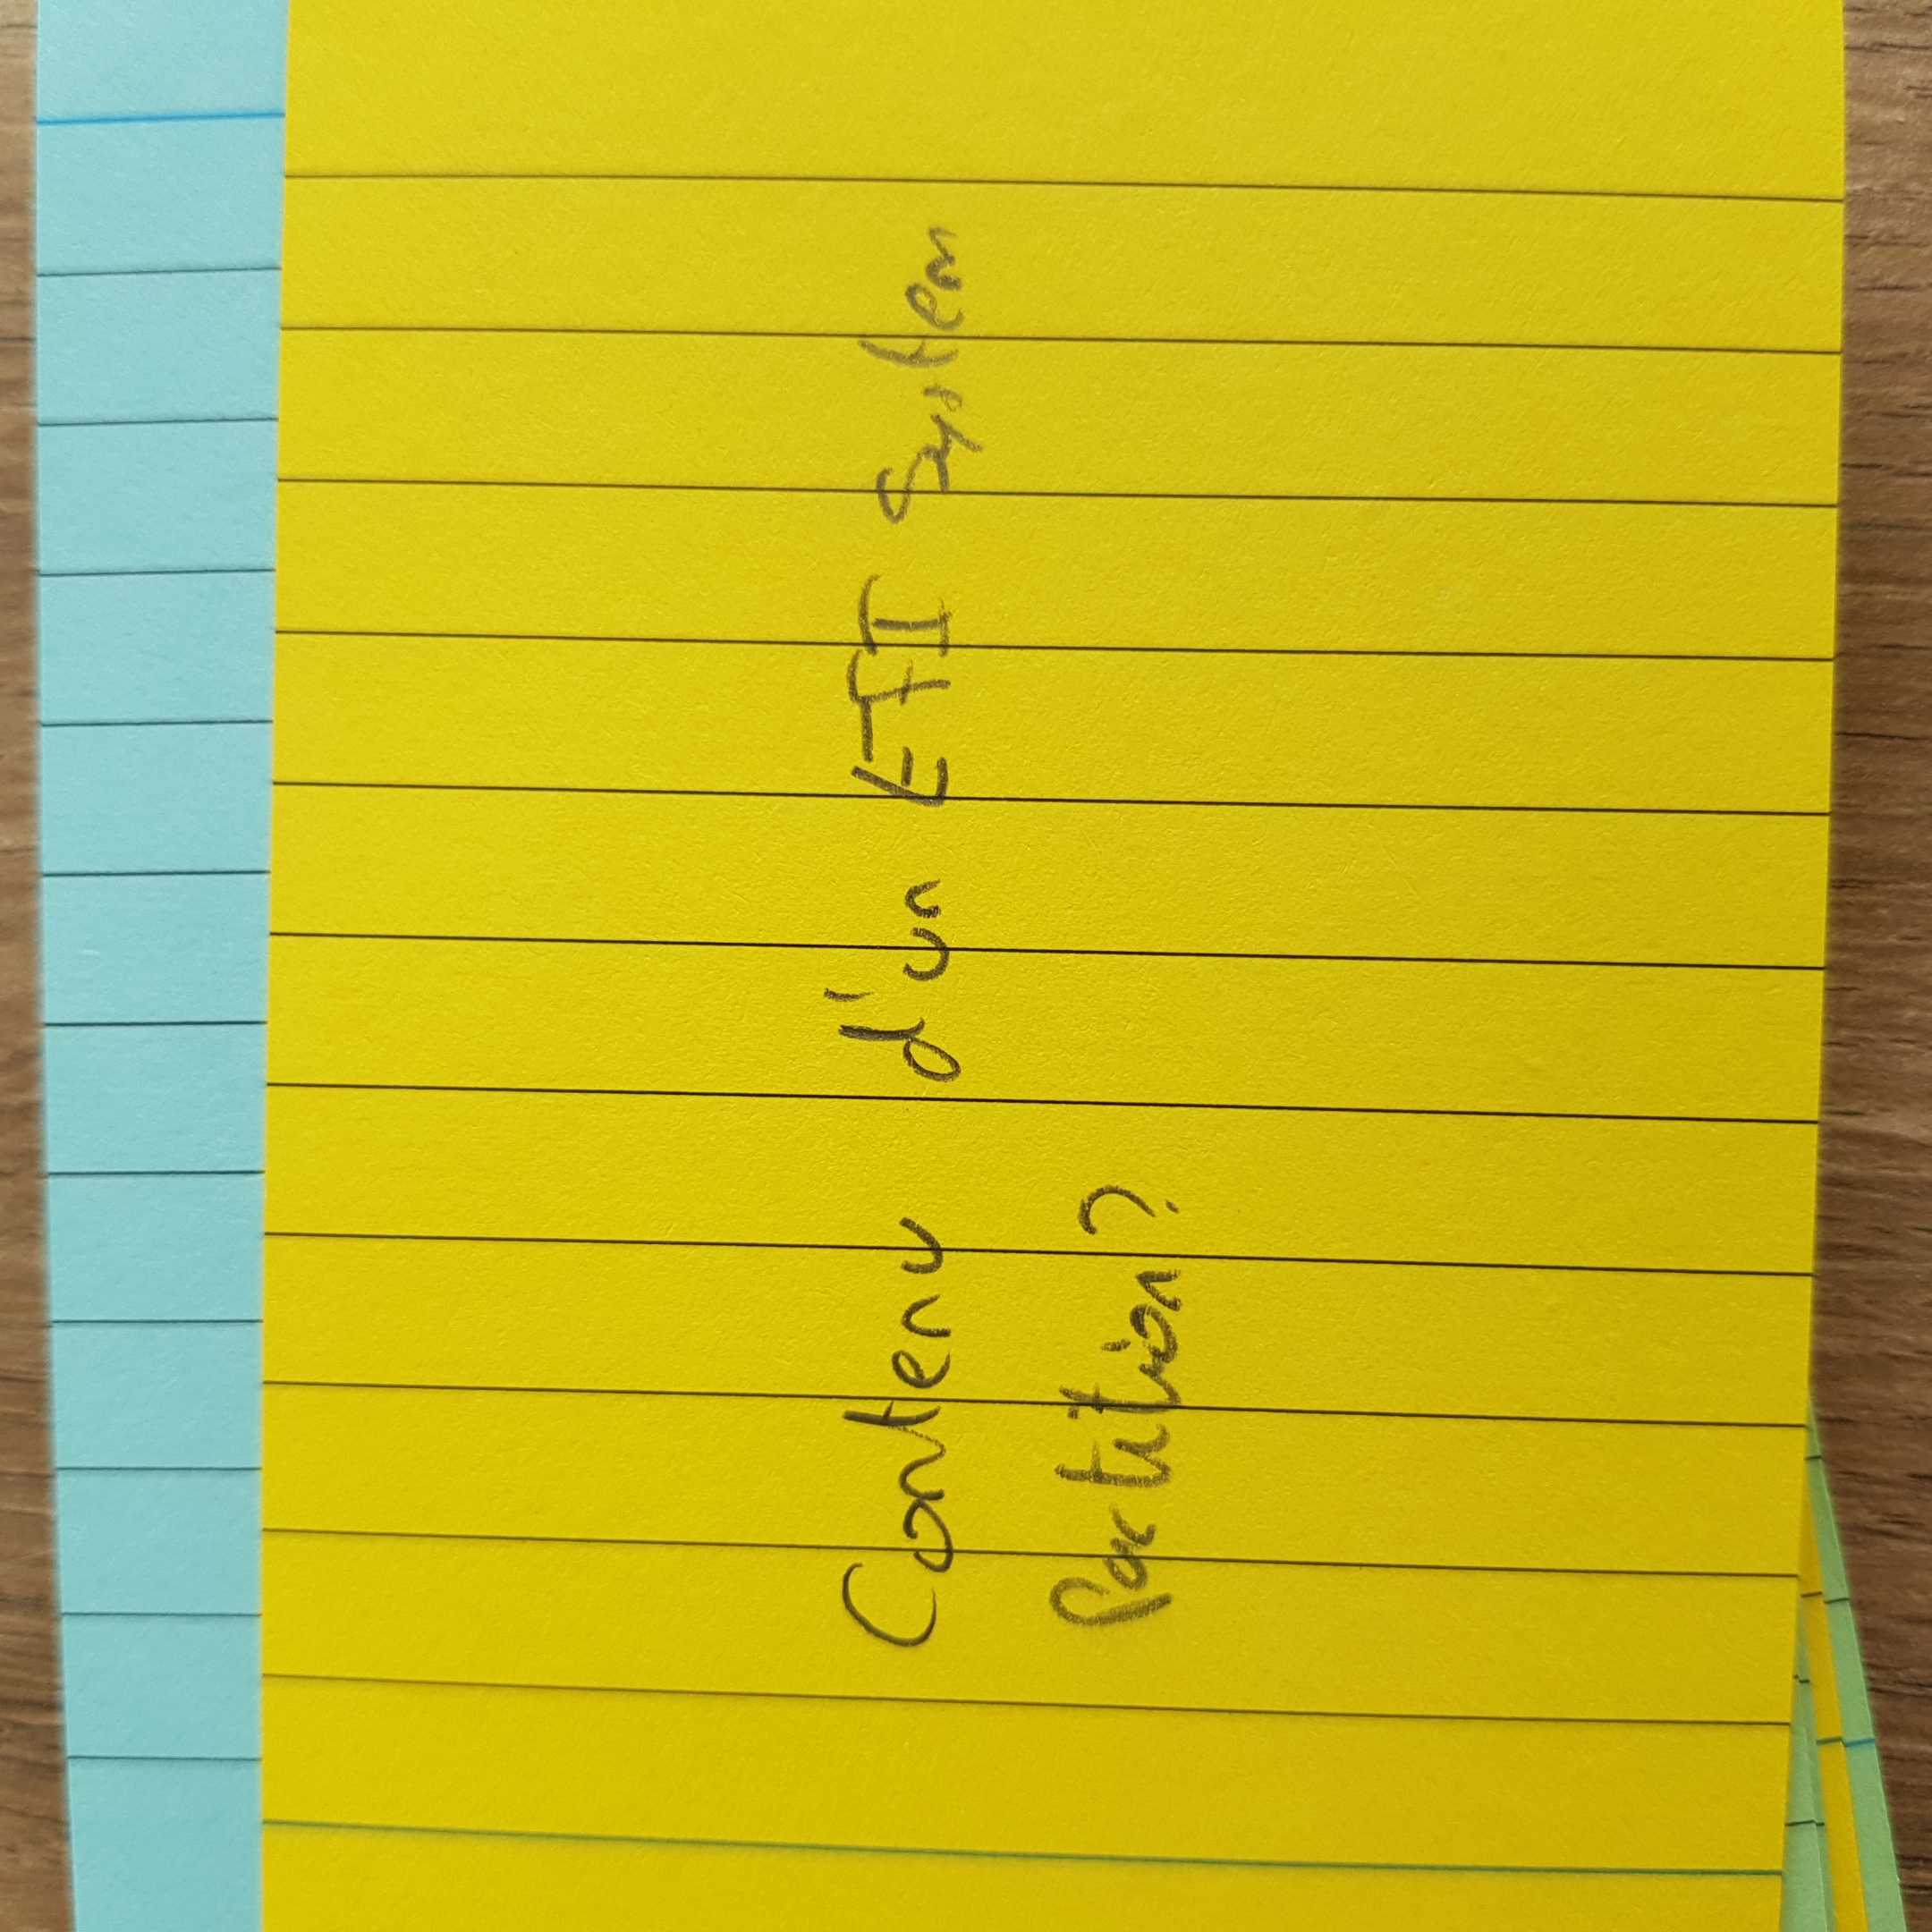 Contenu d'un EFI System
Partition?